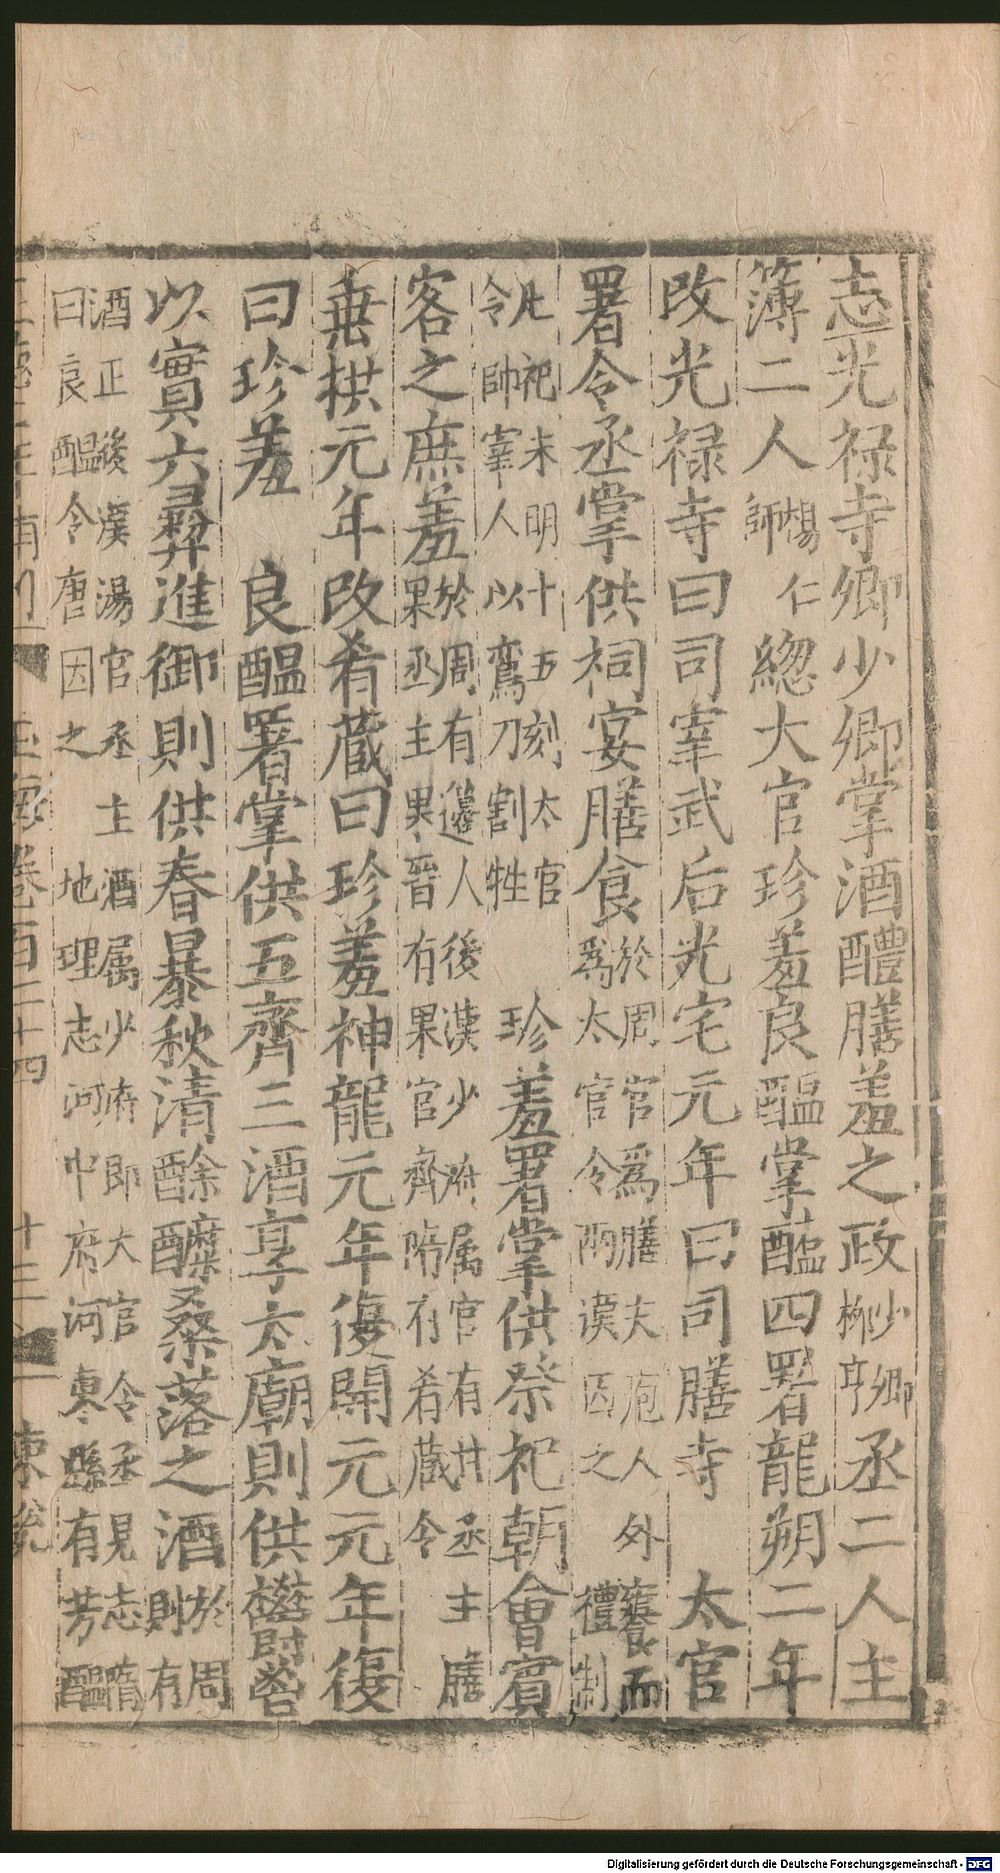 志光禄寺卿少卿掌酒醴膳羞之政少卿柳亨丞二人主
簿二人楊仁師緫大官珍羞良醖掌醢四署龍朔二年
改光禄寺曰司宰武后光宅元年曰司膳寺　太官
署令丞掌供祠宴膳食於周官爲膳夫庖人外饔而爲太官令兩漢因之禮制
凡祀未明十五刻太官令帥宰人以鸞刀割牲　珍羞署掌供祭祀朝會賓
客之庶羞於周有籩人後漢少府属官有甘丞主膳果丞主果晋有果官齊隋有肴蔵令
垂拱元年改肴蔵曰珍羞神龍元年復開元元年復
曰珍羞　良醖署掌供五齊三酒享太廟則供鬱鬯
以實六彛進御則供春暴秋清酴醿桑落之酒於周則有
酒正後漢湯官丞主酒属少府即大官令丞見志隋曰良醖令唐因之　地理志河中府河東縣有芳醖
玉海卷百二十四　十三
Digitalisierung gefördert durch die Deutsche Forschungsgemeinschaft - DFG